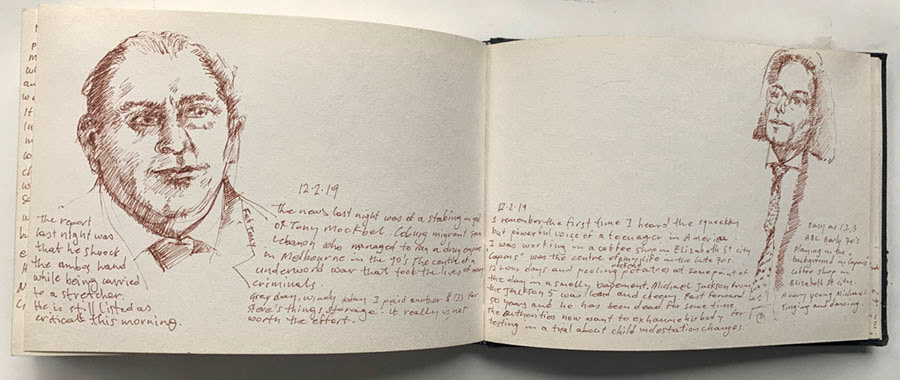 12.2.19
The news last night was of a stabing in jail
of Tony Mockbel. Coburg migrant from
Lebanon who managed to run a drug empire
in Melbourne in the 90's. The centre of a
underworld war that took the lives of many
criminals.
Grey day, windy today. I paid another $133 for
store's things, storage. it really is not
worth the effort.
Fat Tony
The report
last night was
that he shook
the ambos hand
while being carried
to a stretcher.
He is still listed as
critical this morning.
12.2.19
I remember the first time I heard the squeeky
but powerful voice of a teenager in America
I was working in a coffee shop in Elizabeth St city
"Capons" was the centre of my life in the late 70s.
12 hour days and peeling potatoes at some point of
the day in a smelly basement. Michael Jackson from
the Jackson 5 was loud and cheery. Fast forward
50 years and he has been dead for some time
the authorities now want to exhume his body for
testing in a trial about child molestation charges.
Easy as 1.2.3
ABC Early 70's
Playing in the
background in Capons
Coffee shop in
Elizabeth St city.
A very young Michael
singing and dancing.